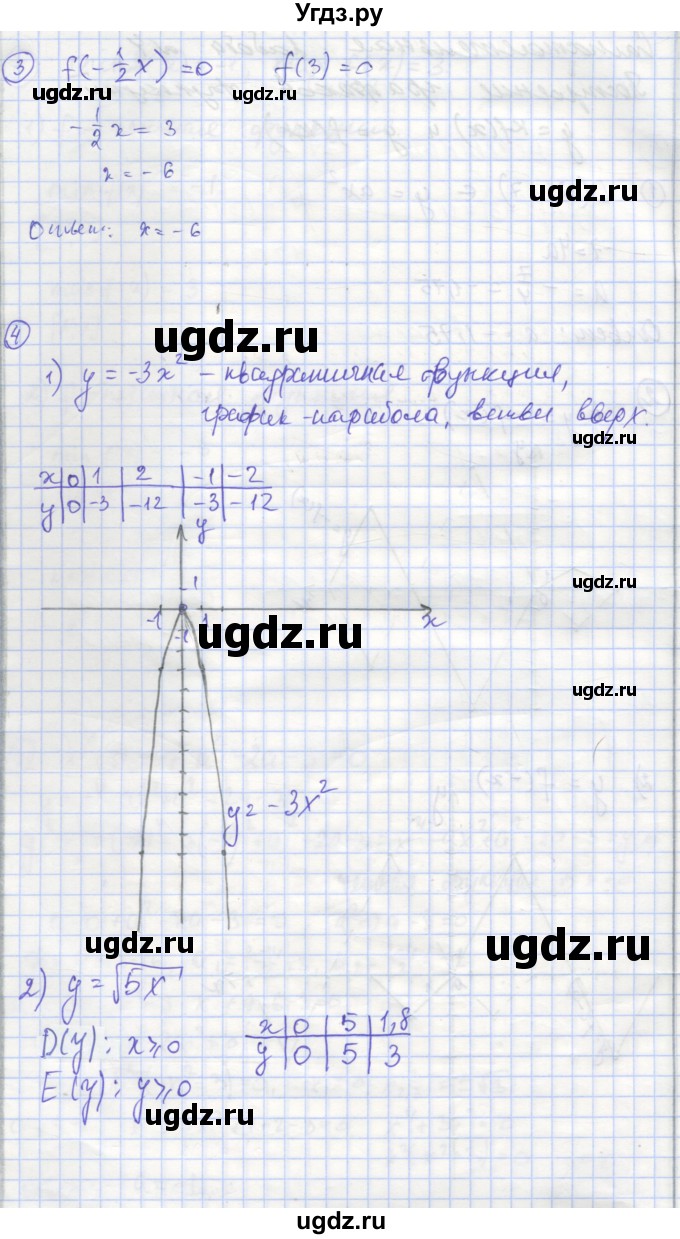 Угдз.ру
③ f(-1/2x) = 0 f(3) = 0
ugdz.ru
ugdz.ru
-1/2x = 3
x = -6
ugdz.ru
Ответ: x = -6
④ ugdz.ru
1) y = -3x² – квадратичная функция,
график - парабола, ветви вверх.
ugdz.ru
x | 0 | 1 | 2 | -1 | -2
y | 0 | -3 | -12 | -3 | -12
y
1
ugdz.ru
-1 1 x
-1
ugdz.ru
ugdz.ru
y = -3x²
ugdz.ru
ugdz.ru
2) y = √5x
x | 0 | 5 | 1,8
D(y): x ⩾ 0
y | 0 | 5 | 3
E(y): y ⩾ 0
ugdz.ru
ugdz.ru